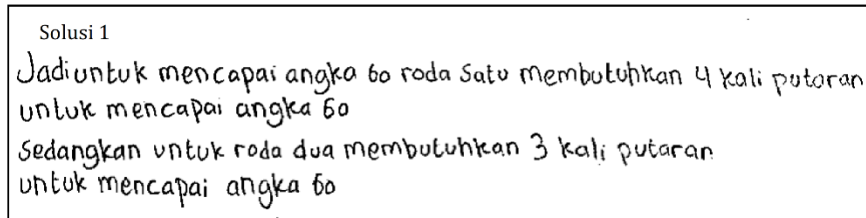 Solusi 1
Jadi untuk mencapai angka 60 roda satu membutuhkan 4 kali putaran
untuk mencapai angka 60
Sedangkan untuk roda dua membutuhkan 3 kali putaran
untuk mencapai angka 60